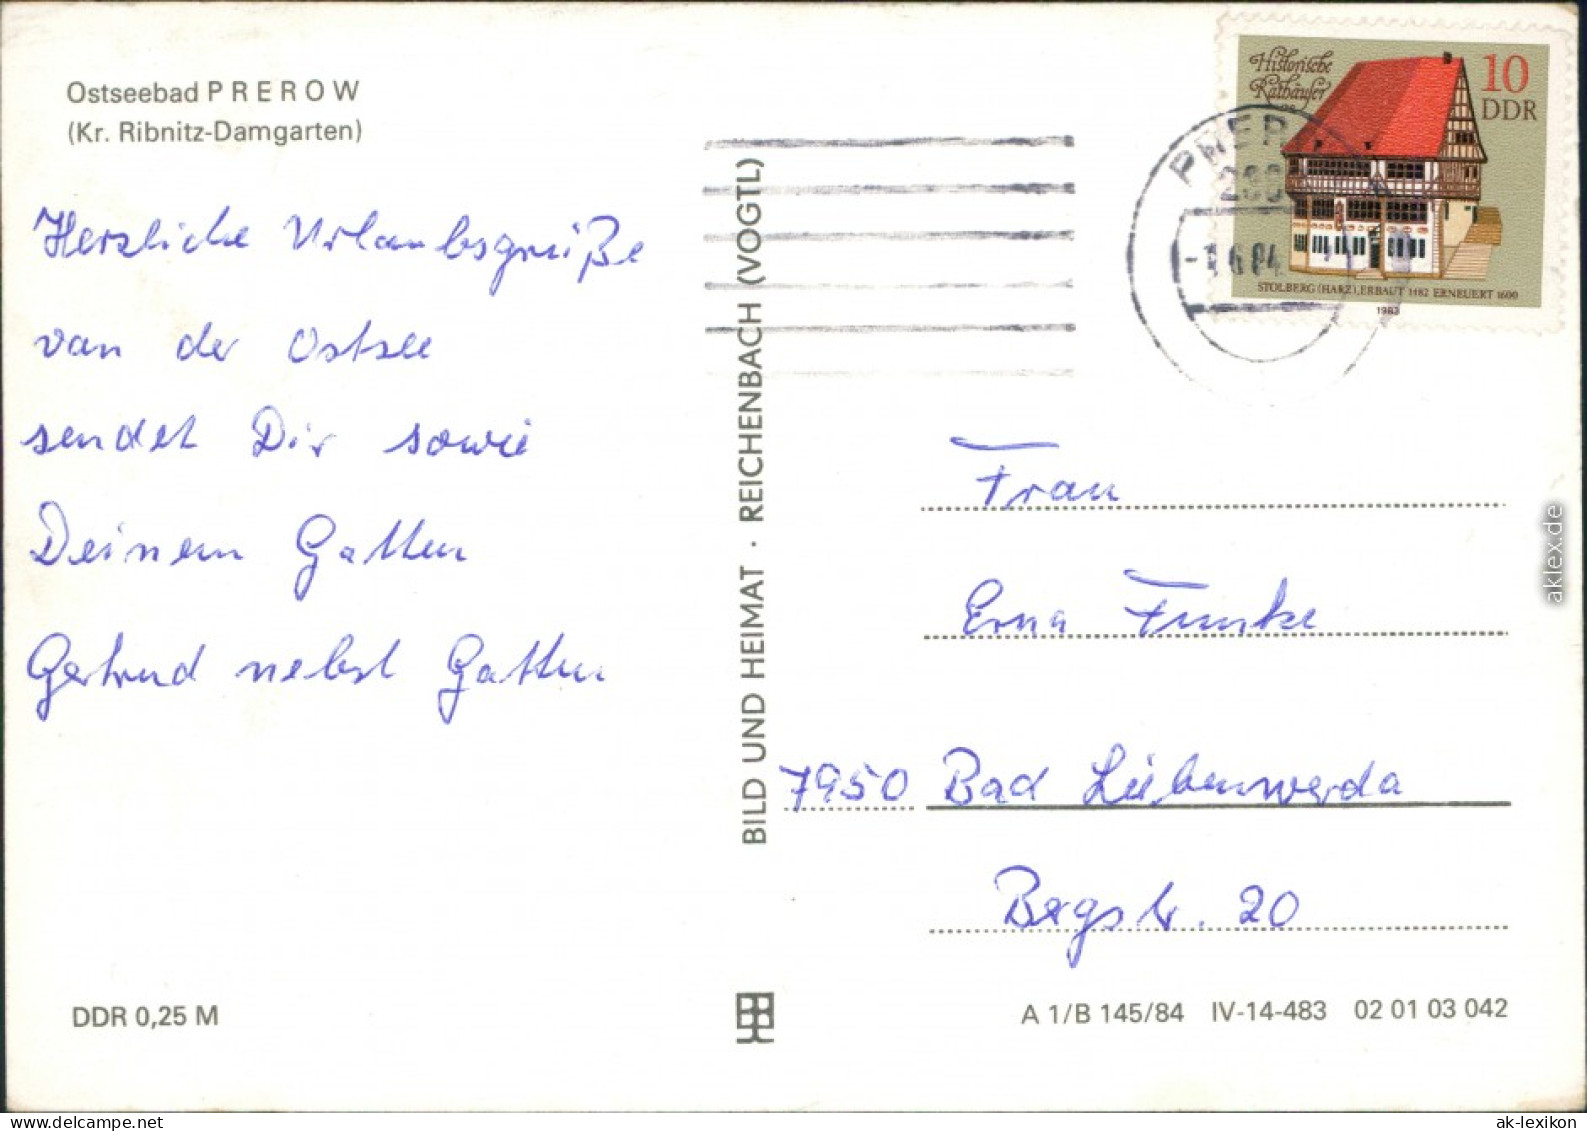 Ostseebad PREROW
(Kr. Ribnitz-Damgarten)
Herzliche Urlaubsgrüße
von der Ostsee
sendet Dir sowie
Deinem Gatten
Gertrud nebst Gatten
DDR 0,25 M
BILD UND HEIMAT · REICHENBACH (VOGTL)
Historische
Rathäuser
10
DDR
STOLBERG (HARZ), ERBAUT 1482 ERNEUERT 1600
1983
PRER
-1.6.84
Frau
Erna Funke
7950 Bad Liebenwerda
Bergstr. 20
A 1/B 145/84 IV-14-483 02 01 03 042
aklex.de
www.delcampe.net
ak-lexikon